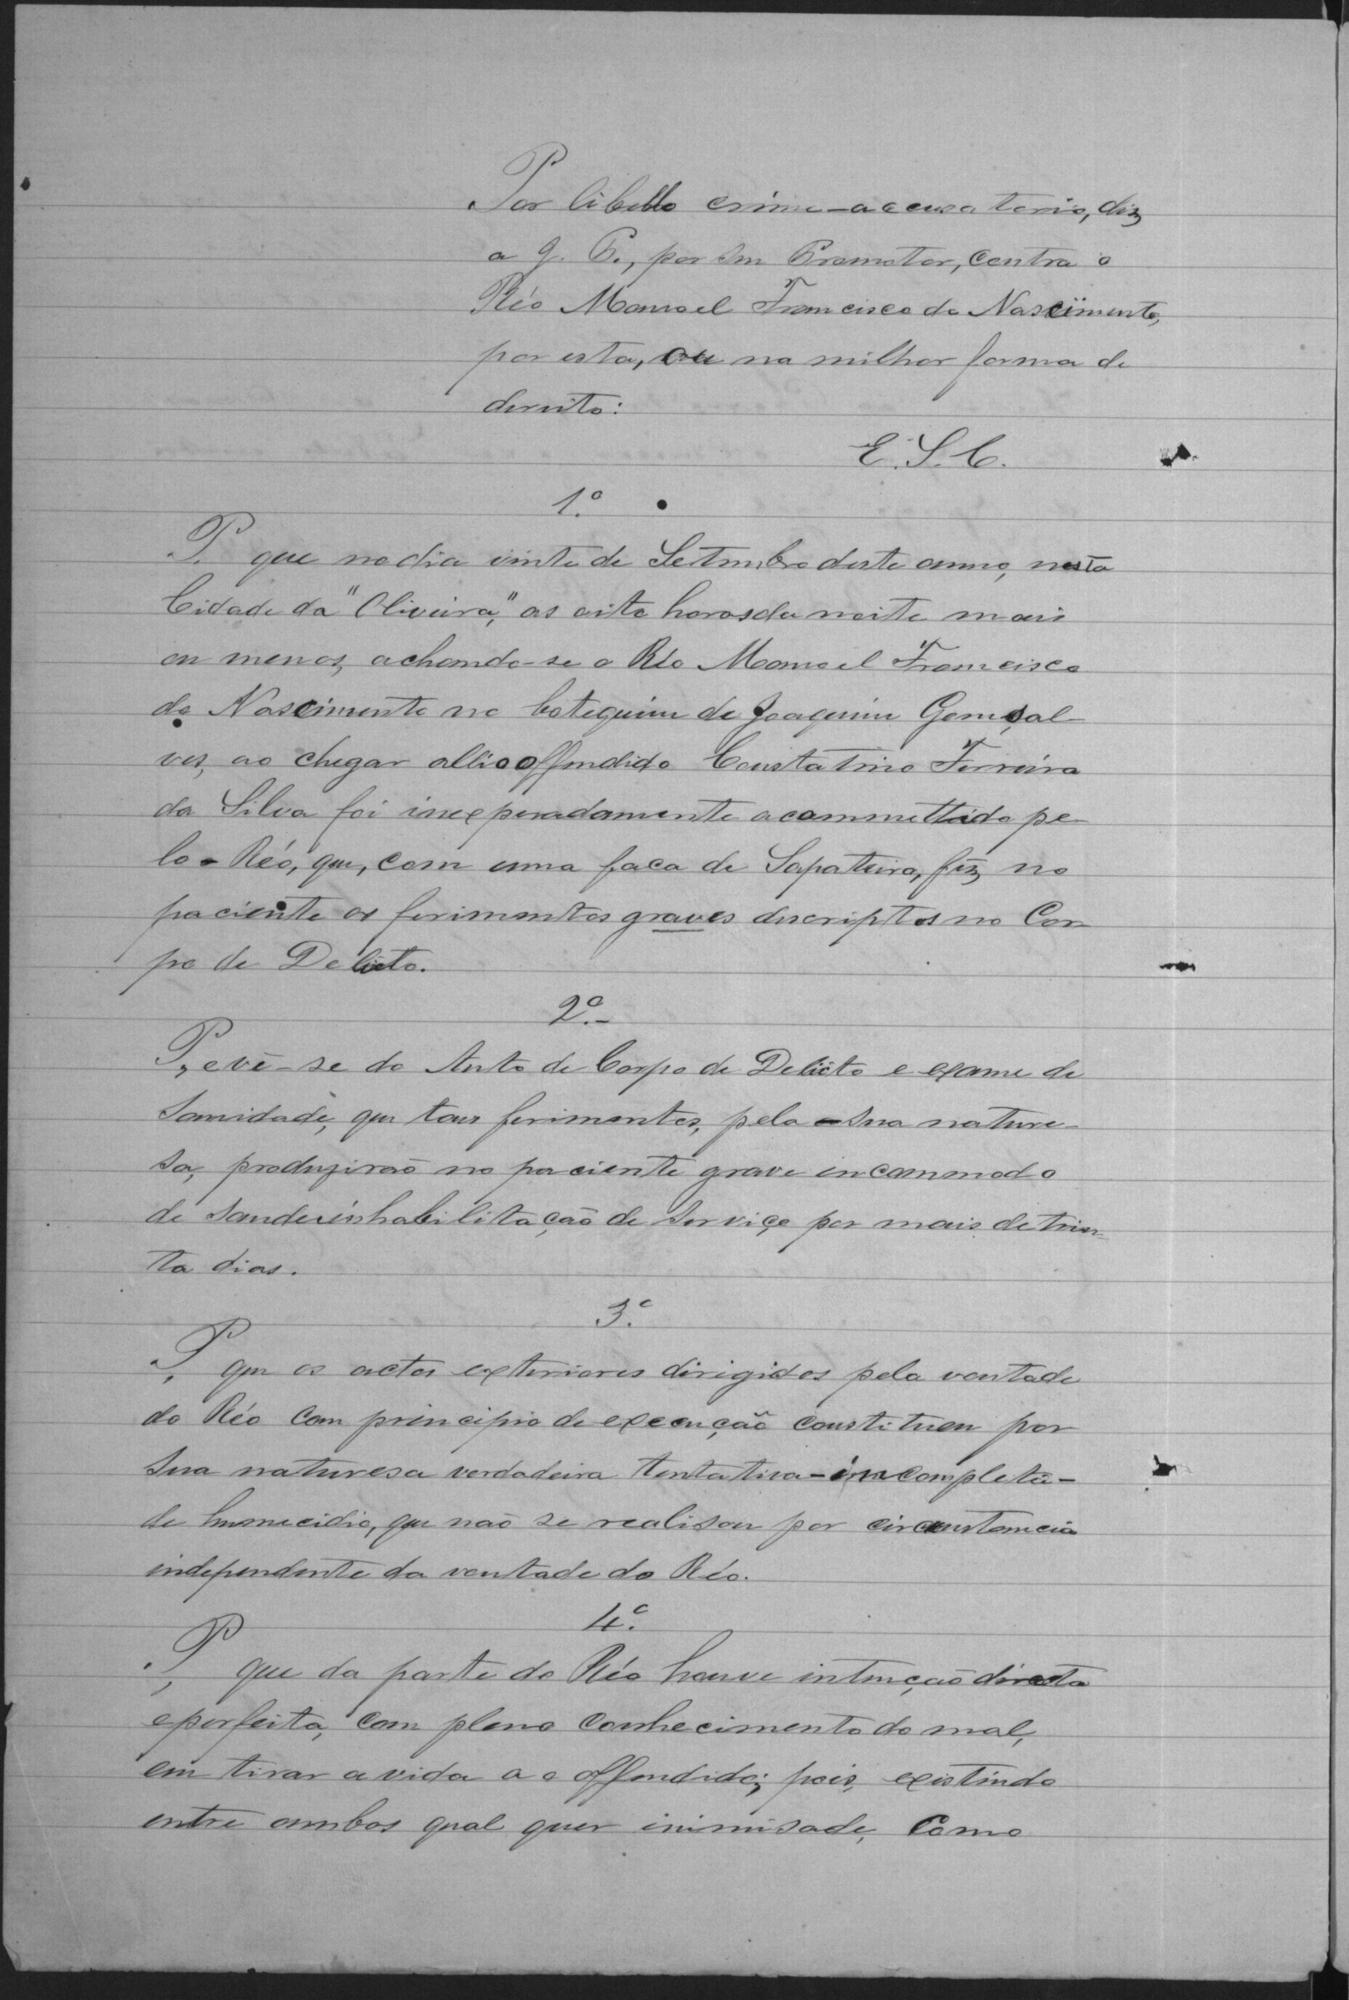 Por libello crime-accusatorio, diz
a J. P., por seu Promotor, contra o
Réo Manoel Francisco do Nascimento,
por esta, ou na milhor forma de
dereito:
E. S. C.
1.º
P. que no dia vinte de Setembro deste anno, nesta
Cidade da "Oliveira," as oito horas da noite mais
ou menos, achando-se o Réo Manoel Francisco
do Nascimento no botequim de Joaquim Gonsal-
ves, ao chegar alli o offendido Constatino Ferreira
da Silva foi inexperadamente acommettido pe-
lo Réo, que, com uma faca de Sapateiro, fez no
paciente os ferimentos graves descriptos no Cor-
po de Delicto.
2º.-
P, e vê-se do Auto de Corpo de Delicto e exame de
Sanidade, que taes ferimentos, pela sua nature-
sa, produzirão no paciente grave incommodo
de saude e inhabilitação de serviço por mais de trin-
ta dias.
3º.
P, que os actos exteriores dirigidos pela vontade
do Réo com principio de execução constituem por
sua naturesa verdadeira tentativa - incompleta -
de homecidio, que não se realisou por circunstancia
independente da vontade do Réo.
4º.
P, que da parte do Réo houve intenção directa
e perfeita, com pleno conhecimento do mal,
em tirar a vida a o offendido; pois, existindo
entre ambos qual quer inimisade, como